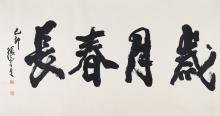 歲月春長
己卯